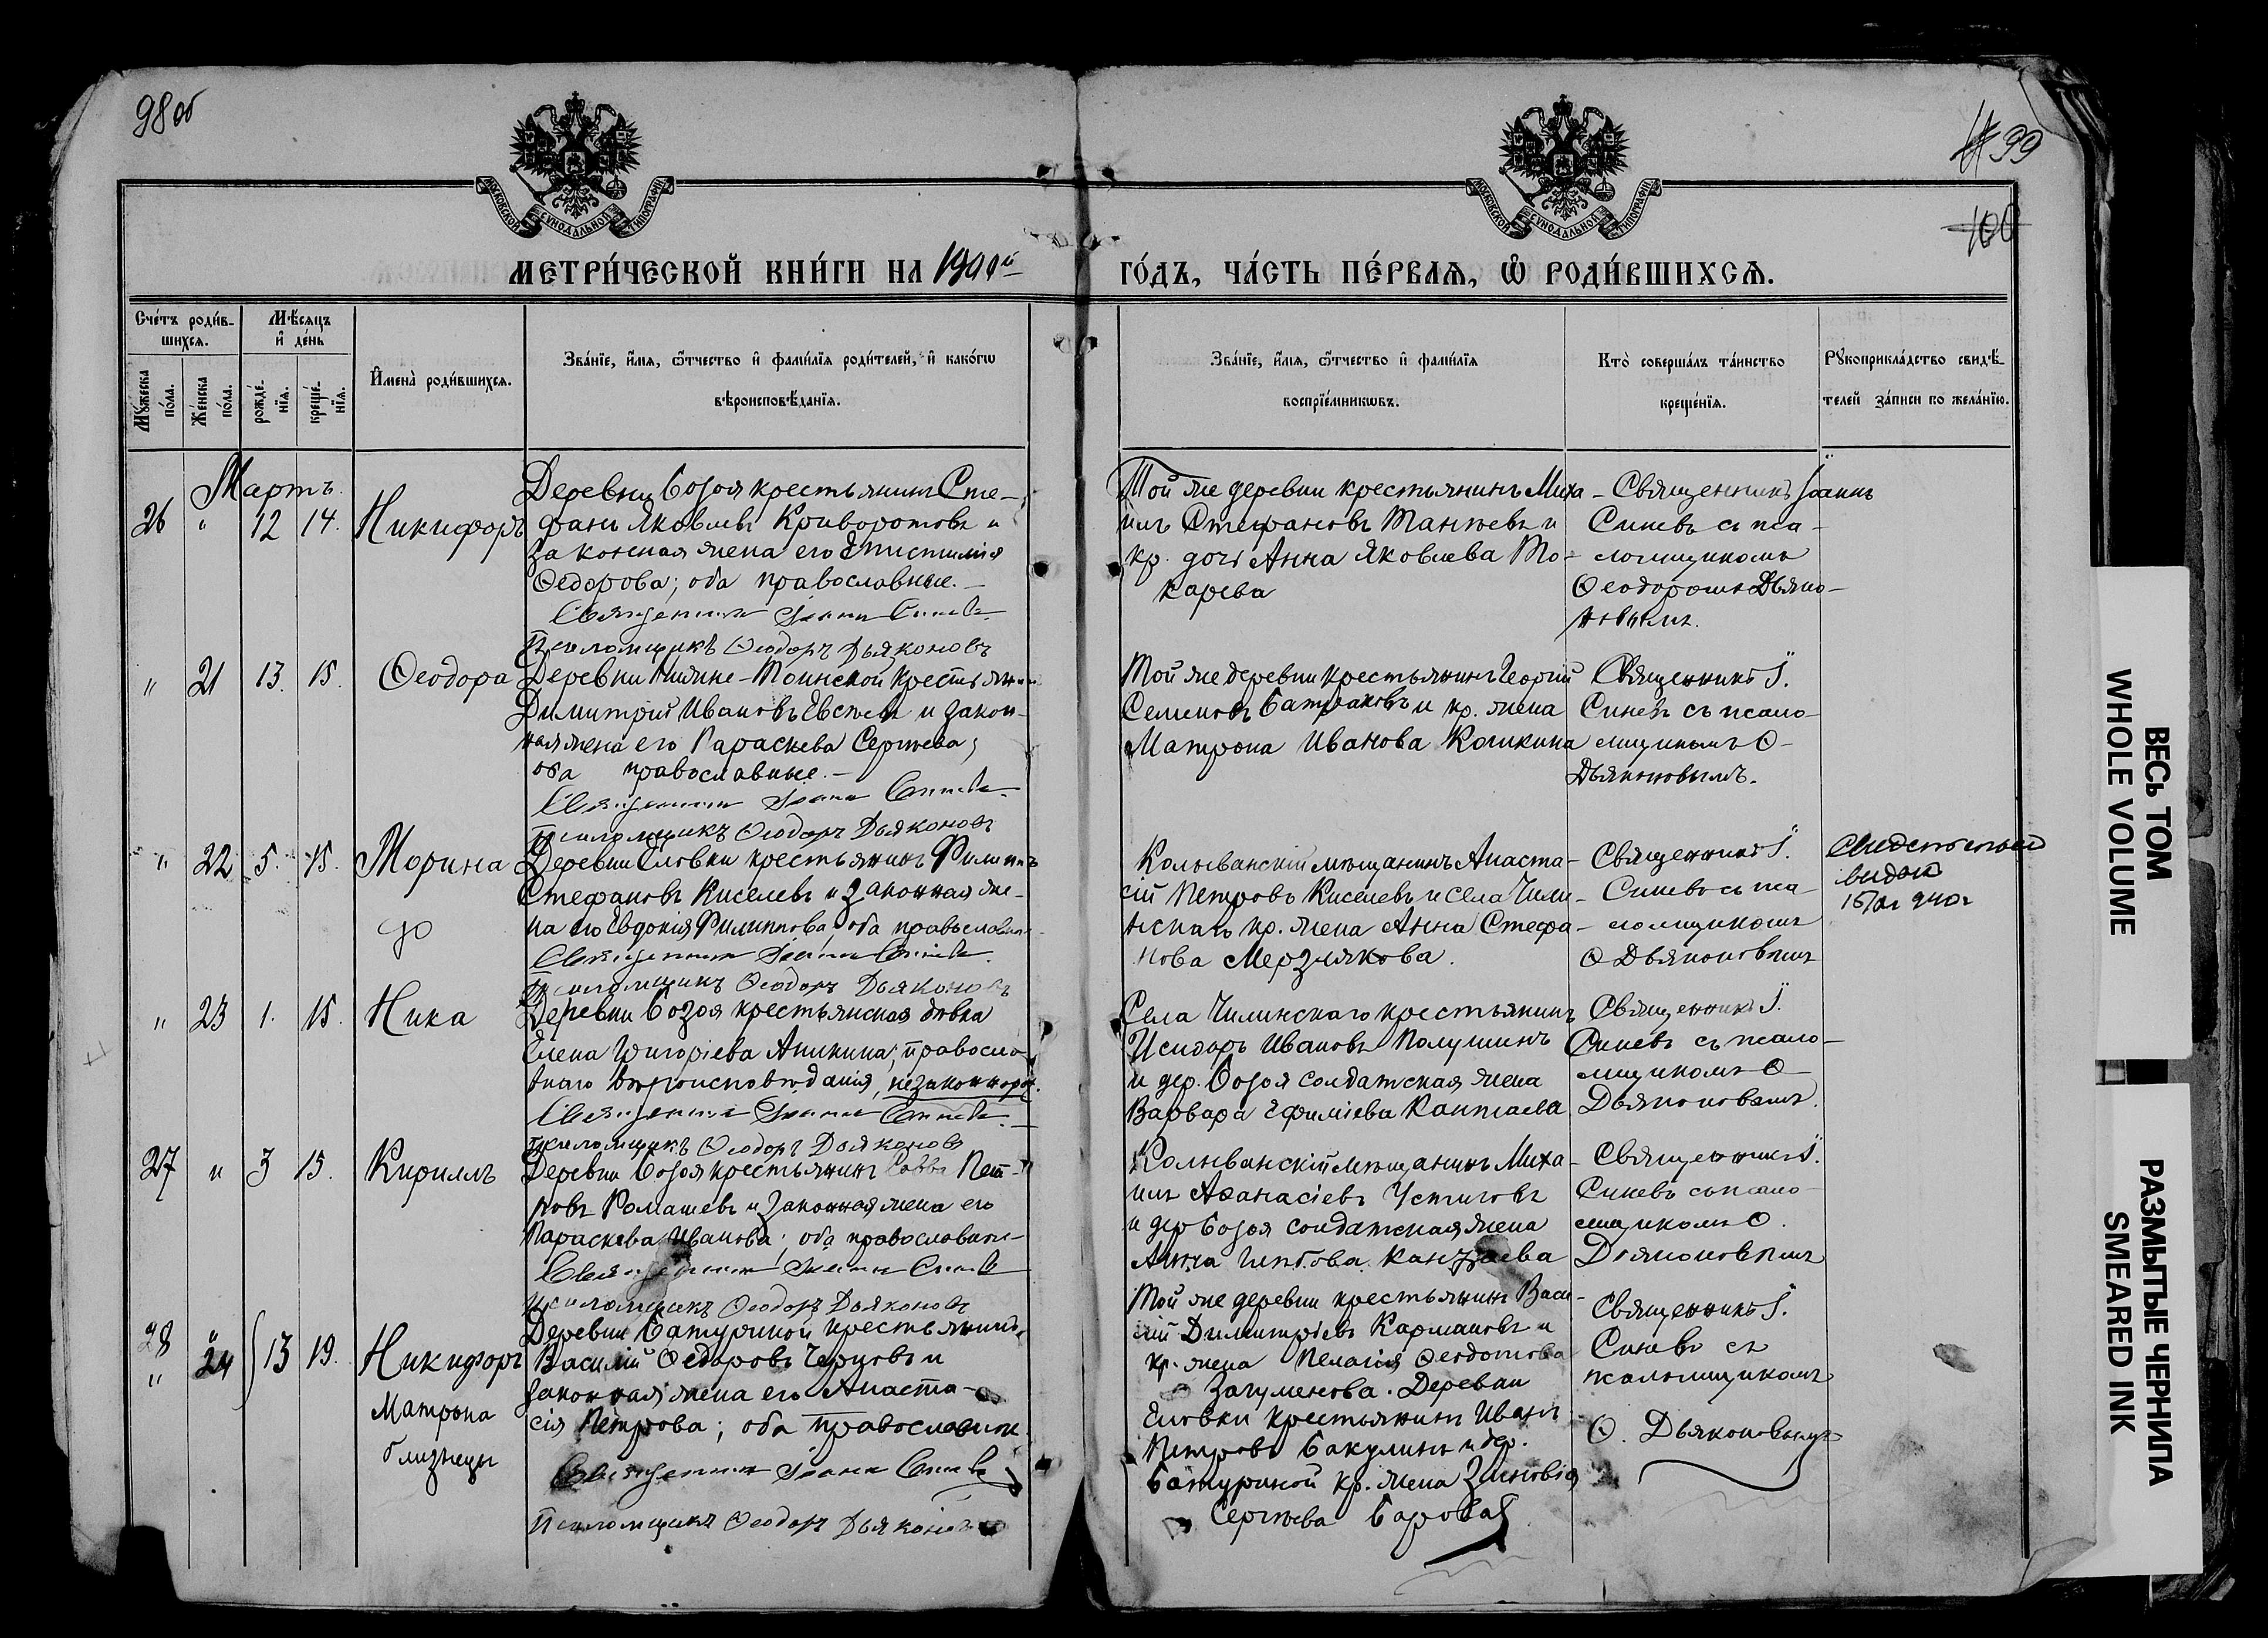 98 об
99
100
МОСКОВСКОЙ СУНОДАЛЬНОЙ ТИПОГРАФІИ
МОСКОВСКОЙ СУНОДАЛЬНОЙ ТИПОГРАФІИ
МЕТРИ́ЧЕСКОЙ КНИ́ГИ НА 1901й
ГО́ДЪ, ЧА́СТЬ ПЕ́РВАЯ, Ѡ РОДИ́ВШИХСЯ.
Сче́тъ роди́в-
шихся.
Мѣ́сяцъ
и де́нь
Му́жеска
по́ла.
Же́нска
по́ла.
рожде́-
нїя.
креще́-
нїя.
Имена̀ роди́вшихся.
Зва́нїе, и́мя, ѻ҆́тчество и фами́лїя роди́телей, и како́гѡ
вѣроисповѣ́данїя.
Зва́нїе, и́мя, ѻ҆́тчество и фами́лїя
воспрїе́мникѡвъ.
Кто̀ соверша́лъ та́инство
креще́нїя.
Рꙋкоприкла́дство свидѣ́-
телей за́писи по жела́нїю.
Мартъ.
26 " 12 14. Никифоръ
Деревни Бозоя крестьянинъ Сте-
фанъ Яковлевъ Криворотовъ и
законная жена его Епистимія
Ѳедорова; оба православные.-
Священникъ Іоаннъ Синевъ
Псаломщикъ Ѳеодоръ Дьяконовъ
Той же деревни крестьянинъ Миха-
илъ Стефановъ Танжевъ и
кр. дочь Анна Яковлева То-
карева
Священникъ Іоаннъ
Синевъ съ пса-
ломщикомъ
Ѳеодоромъ Дьяко-
новымъ.
" 21 13. 15. Ѳеодора
Деревни Нижне-Тоинской крестьянинъ
Димитрій Ивановъ Евсѣевъ и закон-
ная жена его Параскева Сергѣева;
оба православные.-
Священникъ Іоаннъ Синевъ
Псаломщикъ Ѳеодоръ Дьяконовъ
Той же деревни крестьянинъ Георгій
Семеновъ Батраковъ и кр. жена
Матрона Иванова Кошкина
Священникъ І.
Синевъ съ псало-
мщикомъ Ѳ
Дьяконовымъ.
" 22 5. 15. Морина
Деревни Еловки крестьянинъ Филиппъ
Стефановъ Киселевъ и законная же-
на его Евдокія Филиппова, оба православн.
Священникъ Іоаннъ Синевъ
Псаломщикъ Ѳеодоръ Дьяконовъ
Колыванскій мѣщанинъ Анаста-
сій Петровъ Киселевъ и села Чили-
нскаго кр. жена Анна Стефа-
нова Мерзлякова.
Священникъ І.
Синевъ съ пса
ломщикомъ
Ѳ Дьяконовымъ
выдан
" 23 1. 15. Ника
Деревни Бозоя крестьянская дѣвка
Елена Григоріева Аникина; православ
наго вѣроисповѣданія, незаконнорож.
Священникъ Іоаннъ Синевъ
Псаломщикъ Ѳеодоръ Дьяконовъ
Села Чилинскаго крестьянинъ
Исидоръ Ивановъ Полушинъ
и дер. Бозоя солдатская жена
Варвара Ефиміева
Священникъ І.
Синевъ съ псало-
мщикомъ Ѳ
Дьяконовымъ.
27 " 3 15. Кириллъ
Деревни Бозоя крестьянинъ Савва Пет-
ровъ Ромашевъ и законная жена его
Параскева Иванова; оба православные
Священникъ Іоаннъ Синевъ
Псаломщикъ Ѳеодоръ Дьяконовъ
Колыванскій мѣщанинъ Миха-
илъ Аѳанасіевъ Устиговъ
и дер Бозоя солдатская жена
Анна Глѣбова
Священникъ І.
Синевъ съ псало-
мщикомъ Ѳ.
Дьяконовымъ
28 " 13 19. Никифоръ
" 24
Матрона
близнецы
Деревни Батуриной крестьянинъ
Василій Ѳедоровъ Черновъ и
законная жена его Анаста-
сія Петрова; оба православные
Священникъ Іоаннъ Синевъ
Псаломщикъ Ѳеодоръ Дьяконовъ
Той же деревни крестьянинъ Васи-
лій Димитріевъ Кармановъ и
кр. жена Пелагія Ѳеодотова
Загуменова. Деревни
Еловки крестьянинъ Иванъ
Петровъ Бакулинъ и дер.
Батуриной кр. жена Зиновія
Сергѣева
Священникъ І.
Синевъ съ
псаломщикомъ
Ѳ. Дьяконовымъ
ВЕСЬ ТОМ
WHOLE VOLUME
РАЗМЫТЫЕ ЧЕРНИЛА
SMEARED INK